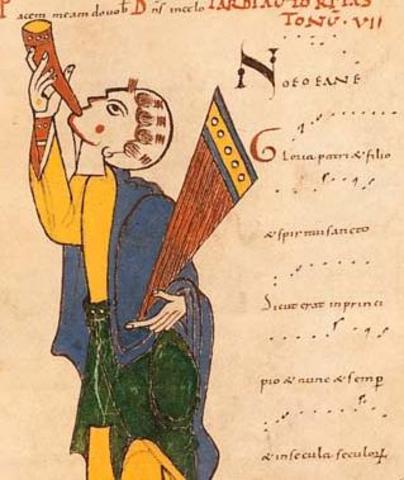 Pacem meam do vob D n̄s in celo
TONV · VII
NOEOEANE
Gloria patri & filio
& spiritui sancto
Sicut erat in princi
pio & nunc & semp̄
& in secula seculoꝝ